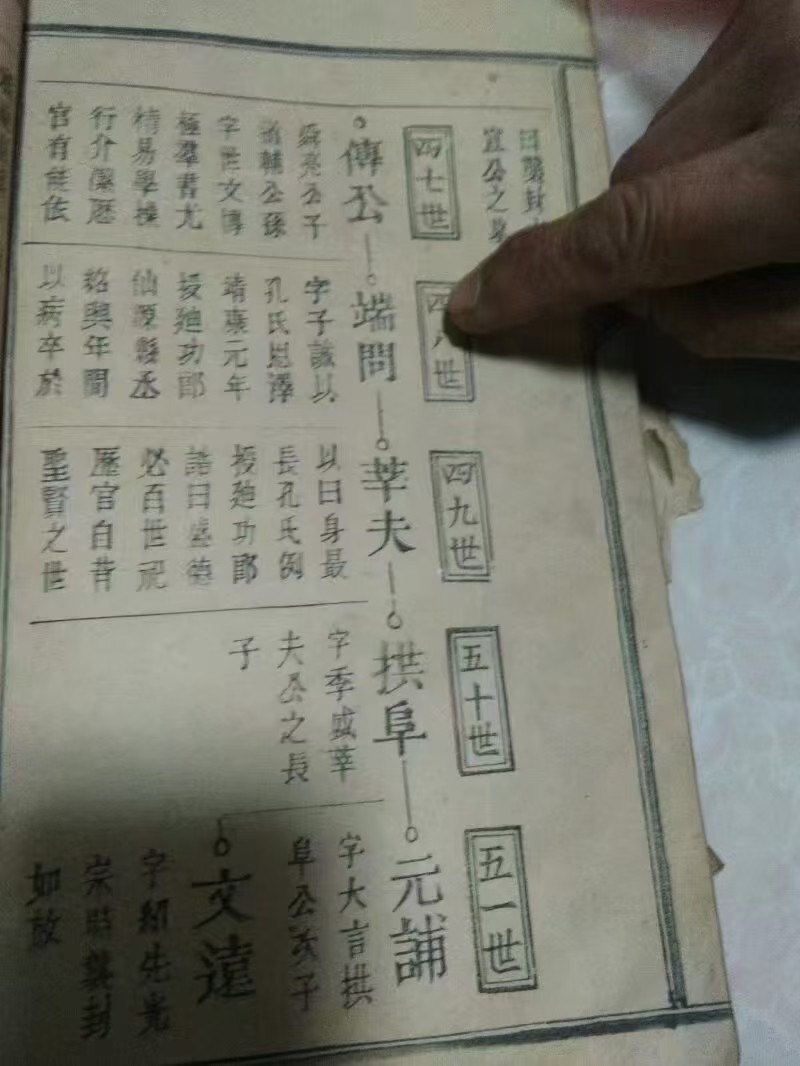 曰襲封
宣公之
四七世
傳公
舜亮公子
若輔公孫
字世文博
極羣書尤
精易學操
行介潔歷
官有能依
世
端問
字子誠以
孔氏恩澤
靖康元年
授廸功郎
仙源縣丞
紹興年間
以病卒於
四九世
莘夫
以曰身最
長孔氏例
授廸功郎
誥曰盛德
必百世祀
歷官自昔
聖賢之世
五十世
拱阜
字季威莘
夫公之長
子
五一世
元誧
字大言拱
阜公次子
文遠
字紹先光
宗時襲封
如故